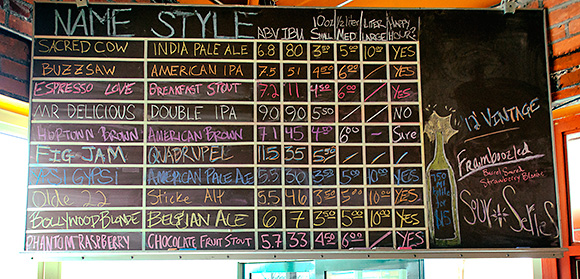 NAME STYLE ABV IBU 10oz SMALL ½ liter MED. LITER LARGE HAPPY HOUR?
SACRED COW INDIA PALE ALE 6.8 80 3⁵⁰ 5⁰⁰ 10⁰⁰ YES
BUZZSAW AMERICAN IPA 7.5 51 4⁵⁰ 6⁰⁰ / YES
ESPRESSO LOVE BREAKFAST STOUT 7.2 11 4⁵⁰ 6⁰⁰ / YES
MR DELICIOUS DOUBLE IPA 9.0 90 5⁵⁰ / / NO
HOPTOWN BROWN AMERICAN BROWN 7.1 45 4⁵⁰ 6⁰⁰ / Sure
FIG JAM QUADRUPEL 11.5 35 5⁵⁰ / / /
PSI GYPSI AMERICAN PALE ALE 5.5 30 3⁵⁰ 5⁰⁰ 10⁰⁰ YES
Olde 22 Sticke Alt 5.5 46 3⁵⁰ 5⁰⁰ 10⁰⁰ YES
BOLLYWOOD BLONDE BELGIAN ALE 6 7 3⁵⁰ 5⁰⁰ 10⁰⁰ YES
PHANTOM RASPBERRY CHOCOLATE FRUIT STOUT 5.7 33 4⁵⁰ 6⁰⁰ / YES
12 VINTAGE
Framboozled
Barrel Soured
Strawberry Blonde
750 ml
Sour Series